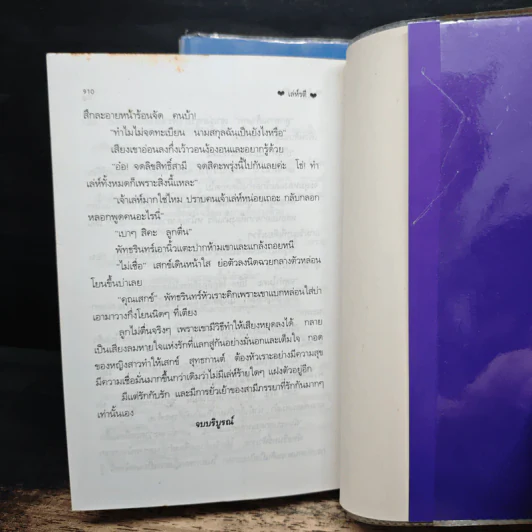 ๔๖๐
เล่ห์รตี
สึกละอายหน้าร้อนจัด คนบ้า!
"ทำไมไม่จดทะเบียน นามสกุลฉันเป็นยังไงหรือ"
เสียงเขาอ่อนลงกึ่งเว้าวอนง้องอนและอยากรู้ด้วย
"อ๋อ! จดลิขสิทธิ์สามี จดสิคะพรุ่งนี้ไปกันเลยค่ะ โธ่! ทำ
เล่ห์ทั้งหมดก็เพราะสิ่งนี้แหละ"
"เจ้าเล่ห์มากใช่ไหม ปราบคนเจ้าเล่ห์หน่อยเถอะ กลับกลอก
หลอกพูดคนอะไรนี่"
"เบาๆ สิคะ ลูกตื่น"
พัทธรินทร์เอานิ้วแตะปากห้ามเขาและแกล้งถอยหนี
"ไม่เชื่อ" เสกข์เดินหน้าใส่ ย่อตัวลงนิดฉวยกลางตัวหล่อน
โยนขึ้นบ่าเลย
"คุณเสกข์" พัทธรินทร์หัวเราะคิกเพราะเขาแบกหล่อนใส่บ่า
เอามาวางกึ่งโยนนิดๆ ที่เตียง
ลูกไม่ตื่นจริงๆ เพราะเขามีวิธีทำให้เสียงหยุดลงได้ กลาย
เป็นเสียงลมหายใจแห่งรักที่แลกสู่กันอย่างมั่นอกและเต็มใจ กอด
ของหญิงสาวทำให้เสกข์ สุทธกานต์ ต้องหัวเราะอย่างมีความสุข
มีความเชื่อมั่นมากขึ้นกว่าเดิมว่าไม่มีเล่ห์ร้ายใดๆ แฝงตัวอยู่อีก
มีแต่รักกับรัก และมีการยั่วเย้าของสามีภรรยาที่รักกันมากๆ
เท่านั้นเอง
จบบริบูรณ์